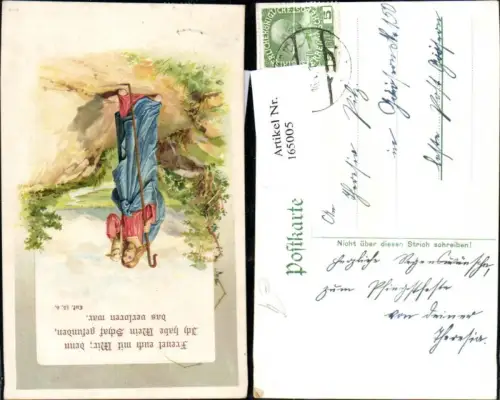 Freuet euch mit Mir; denn
Ich habe Mein Schaf gefunden,
das verloren war.
Luk. 15. 6.
5
Artikel Nr.
165005
Postkarte
Nicht über diesen Strich schreiben!
Theresia
in
letzte Post
Herzliche Segenswünsche
zum Pfingstfeste
von deiner
Theresia.